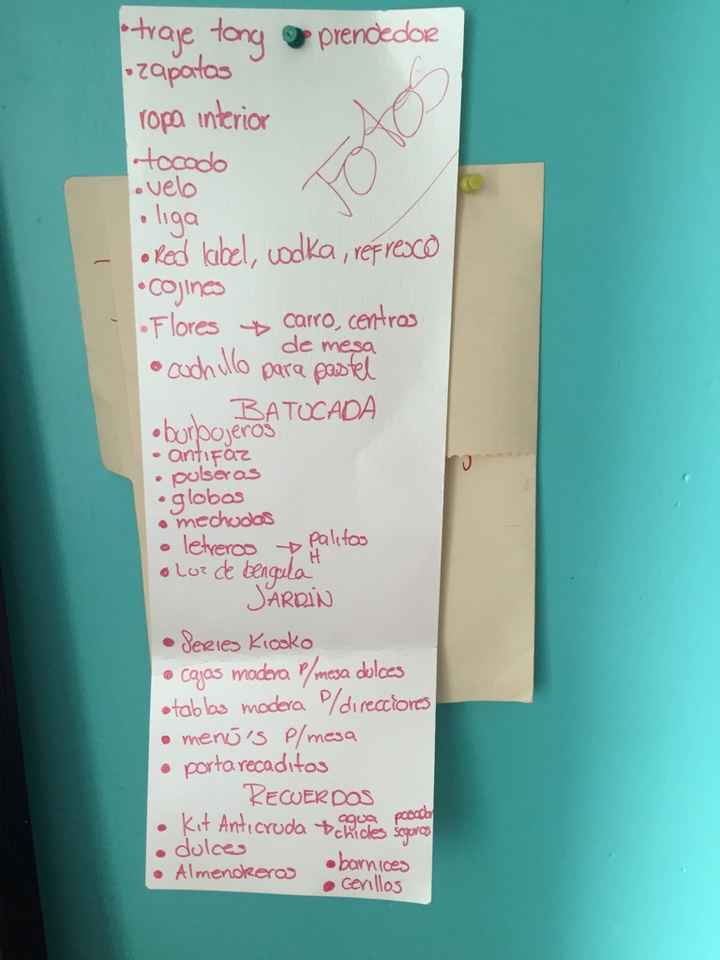 • traje tony • prendedor
• zapatos
ropa interior
FOTOS
• tocado
• velo
• liga
• Red label, vodka, refresco
• cojines
• Flores → carro, centros de mesa
• cuchillo para pastel
BATUCADA
• burbujeros
• antifaz
• pulseras
• globos
• mechudos
• letreros → palitos H
• Luz de bengala
JARDIN
• Series Kiosko
• cajas madera P/mesa dulces
• tablas madera P/direcciones
• menú's P/mesa
• portarecaditos
RECUERDOS
• Kit Anticruda → agua chicles
• dulces
• Almendreros
• barnices
• cerillos